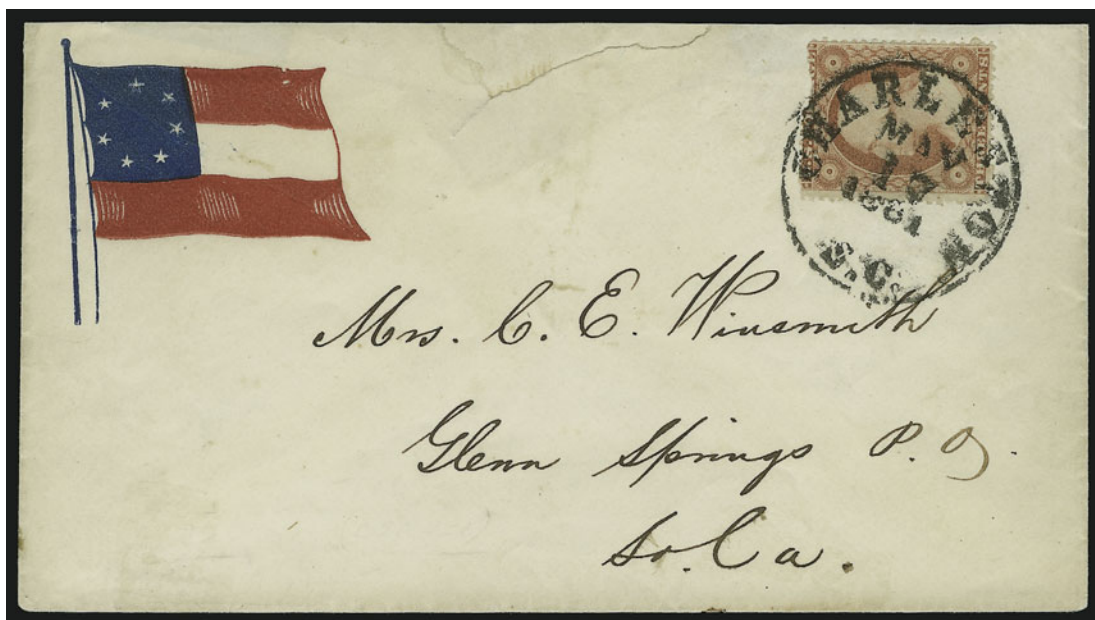 CHARLESTON
MAY
1861
S.C.
Mrs. C. E. Winsmith
Glenn Springs P. O.
So. Ca.